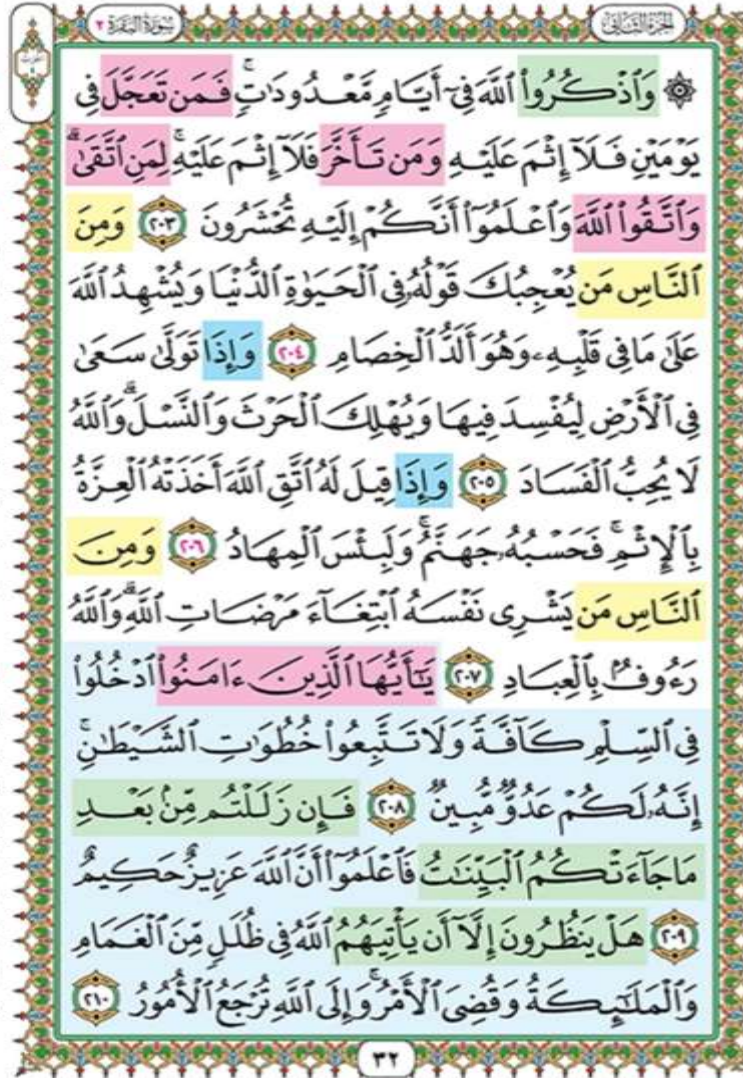 سُورَةُ البَقَرَةِ ٢
الجُزْءُ الثَّانِي
۞ وَٱذْكُرُوا۟ ٱللَّهَ فِىٓ أَيَّامٍ مَّعْدُودَٰتٍ ۚ فَمَن تَعَجَّلَ فِى
يَوْمَيْنِ فَلَآ إِثْمَ عَلَيْهِ وَمَن تَأَخَّرَ فَلَآ إِثْمَ عَلَيْهِ ۚ لِمَنِ ٱتَّقَىٰ ۗ
وَٱتَّقُوا۟ ٱللَّهَ وَٱعْلَمُوٓا۟ أَنَّكُمْ إِلَيْهِ تُحْشَرُونَ ٢٠٣ وَمِنَ
ٱلنَّاسِ مَن يُعْجِبُكَ قَوْلُهُۥ فِى ٱلْحَيَوٰةِ ٱلدُّنْيَا وَيُشْهِدُ ٱللَّهَ
عَلَىٰ مَا فِى قَلْبِهِۦ وَهُوَ أَلَدُّ ٱلْخِصَامِ ٢٠٤ وَإِذَا تَوَلَّىٰ سَعَىٰ
فِى ٱلْأَرْضِ لِيُفْسِدَ فِيهَا وَيُهْلِكَ ٱلْحَرْثَ وَٱلنَّسْلَ ۗ وَٱللَّهُ
لَا يُحِبُّ ٱلْفَسَادَ ٢٠٥ وَإِذَا قِيلَ لَهُ ٱتَّقِ ٱللَّهَ أَخَذَتْهُ ٱلْعِزَّةُ
بِٱلْإِثْمِ ۚ فَحَسْبُهُۥ جَهَنَّمُ ۚ وَلَبِئْسَ ٱلْمِهَادُ ٢٠٦ وَمِنَ
ٱلنَّاسِ مَن يَشْرِى نَفْسَهُ ٱبْتِغَآءَ مَرْضَاتِ ٱللَّهِ ۗ وَٱللَّهُ
رَءُوفٌۢ بِٱلْعِبَادِ ٢٠٧ يَٰٓأَيُّهَا ٱلَّذِينَ ءَامَنُوا۟ ٱدْخُلُوا۟
فِى ٱلسِّلْمِ كَآفَّةً وَلَا تَتَّبِعُوا۟ خُطُوَٰتِ ٱلشَّيْطَٰنِ ۚ
إِنَّهُۥ لَكُمْ عَدُوٌّ مُّبِينٌ ٢٠٨ فَإِن زَلَلْتُم مِّنۢ بَعْدِ
مَا جَآءَتْكُمُ ٱلْبَيِّنَٰتُ فَٱعْلَمُوٓا۟ أَنَّ ٱللَّهَ عَزِيزٌ حَكِيمٌ
٢٠٩ هَلْ يَنظُرُونَ إِلَّآ أَن يَأْتِيَهُمُ ٱللَّهُ فِى ظُلَلٍ مِّنَ ٱلْغَمَامِ
وَٱلْمَلَٰٓئِكَةُ وَقُضِىَ ٱلْأَمْرُ ۚ وَإِلَى ٱللَّهِ تُرْجَعُ ٱلْأُمُورُ ٢١٠
٣٢